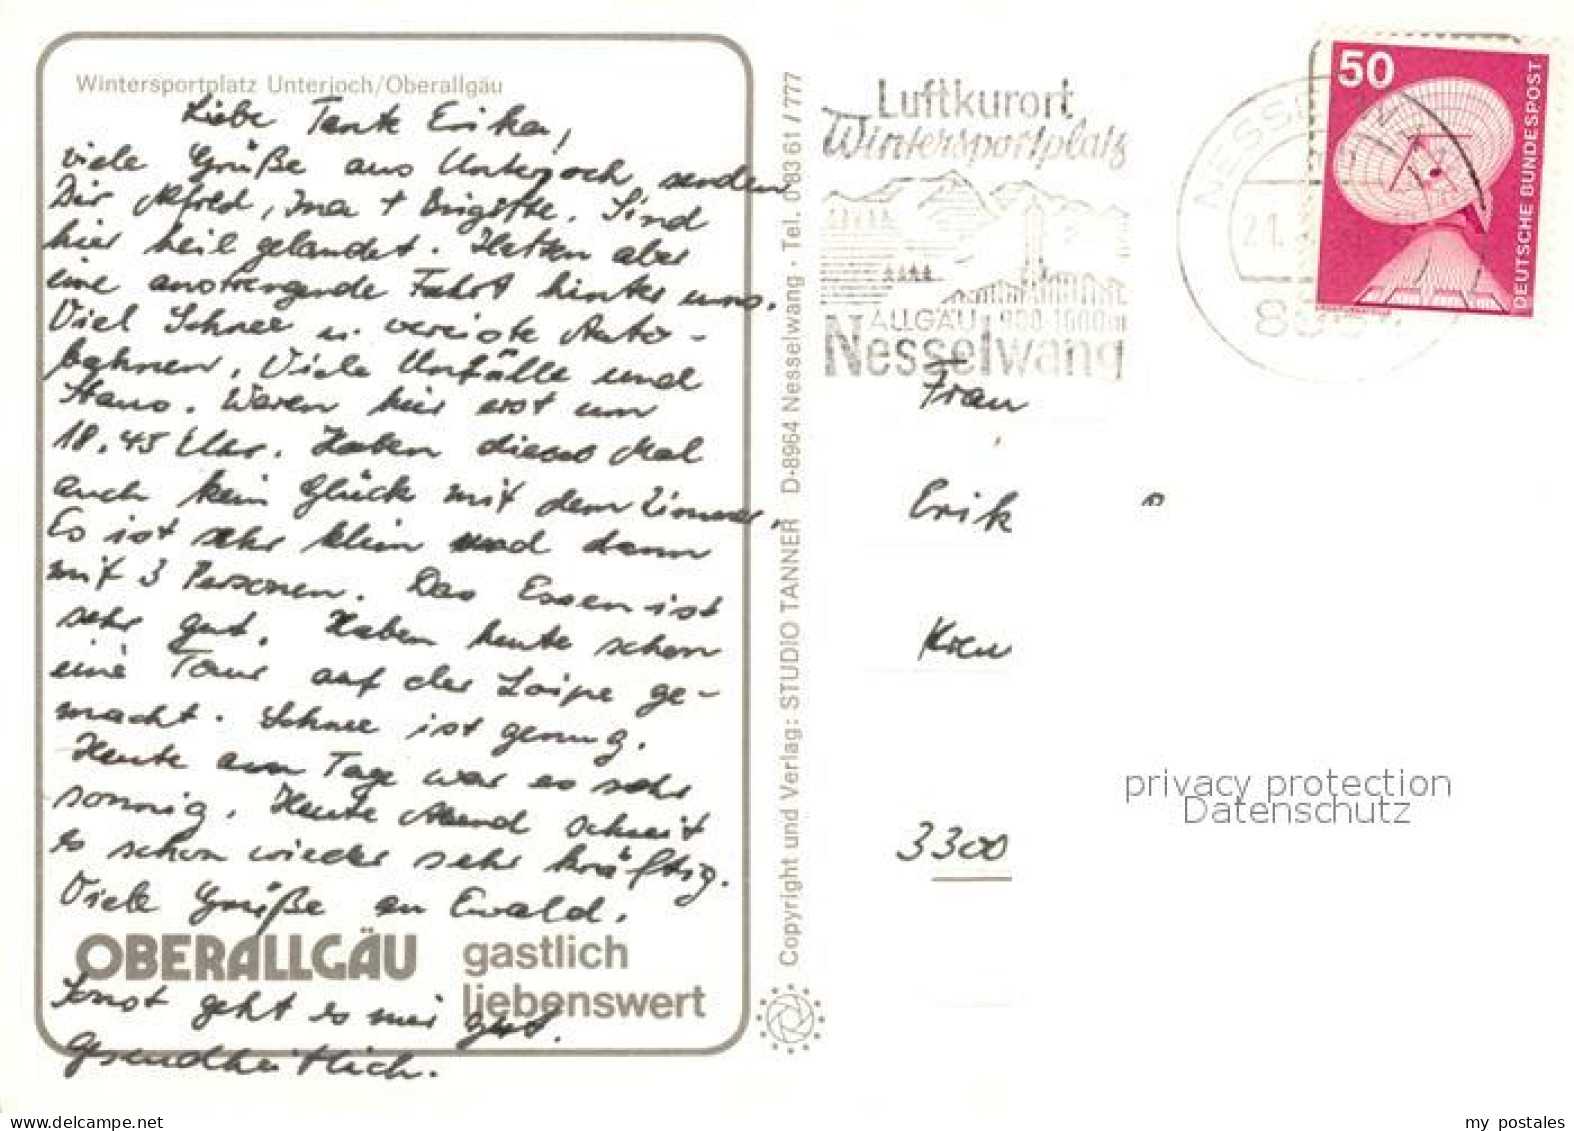 Wintersportplatz Unterjoch/Oberallgäu
Liebe Tante Erika,
viele Grüße aus Unterjoch senden
Dir Alfred, Ina + Brigitte. Sind
hier heil gelandet. Hatten aber
eine anstrengende Fahrt hinter uns.
Viel Schnee u. vereiste Auto-
bahnen, Viele Unfälle und
Staus. Waren hier erst um
18.45 Uhr. Haben dieses Mal
auch kein Glück mit dem Zimmer.
Es ist sehr klein und dann
mit 3 Personen. Das Essen ist
sehr gut. Haben heute schon
eine Tour auf der Loipe ge-
macht. Schnee ist genug.
Heute am Tage war es sehr
sonnig. Heute Abend schneit
es schon wieder sehr kräftig.
Viele Grüße an Ewald.
OBERALLGÄU gastlich
liebenswert
Sonst geht es mir gut.
Gesundheitlich.
Copyright und Verlag: STUDIO TANNER D-8964 Nesselwang · Tel. 0 83 61 / 777
Luftkurort
Wintersportplatz
ALLGÄU 900-1600m
Nesselwang
NESSE
21.
50
DEUTSCHE BUNDESPOST
Frau
Erik
3300
privacy protection
Datenschutz
www.delcampe.net
my_postales